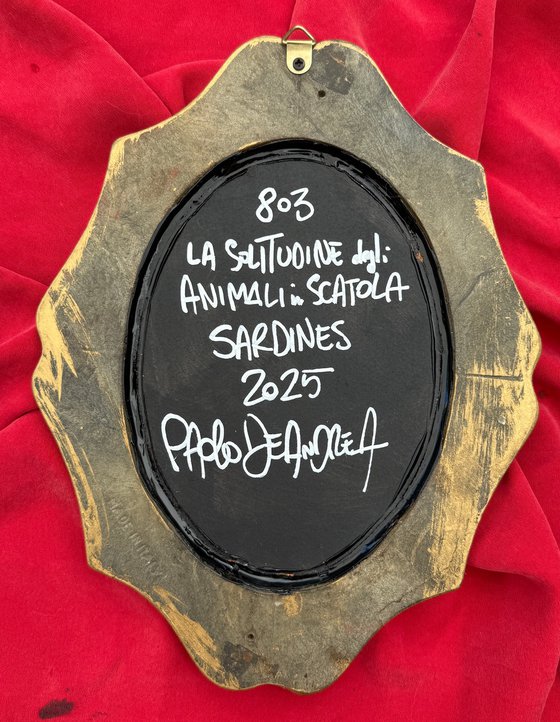 803
LA SOLITUDINE degli
ANIMALI in SCATOLA
SARDINES
2025
PAOLO DEANDREA
MADE IN ITALY